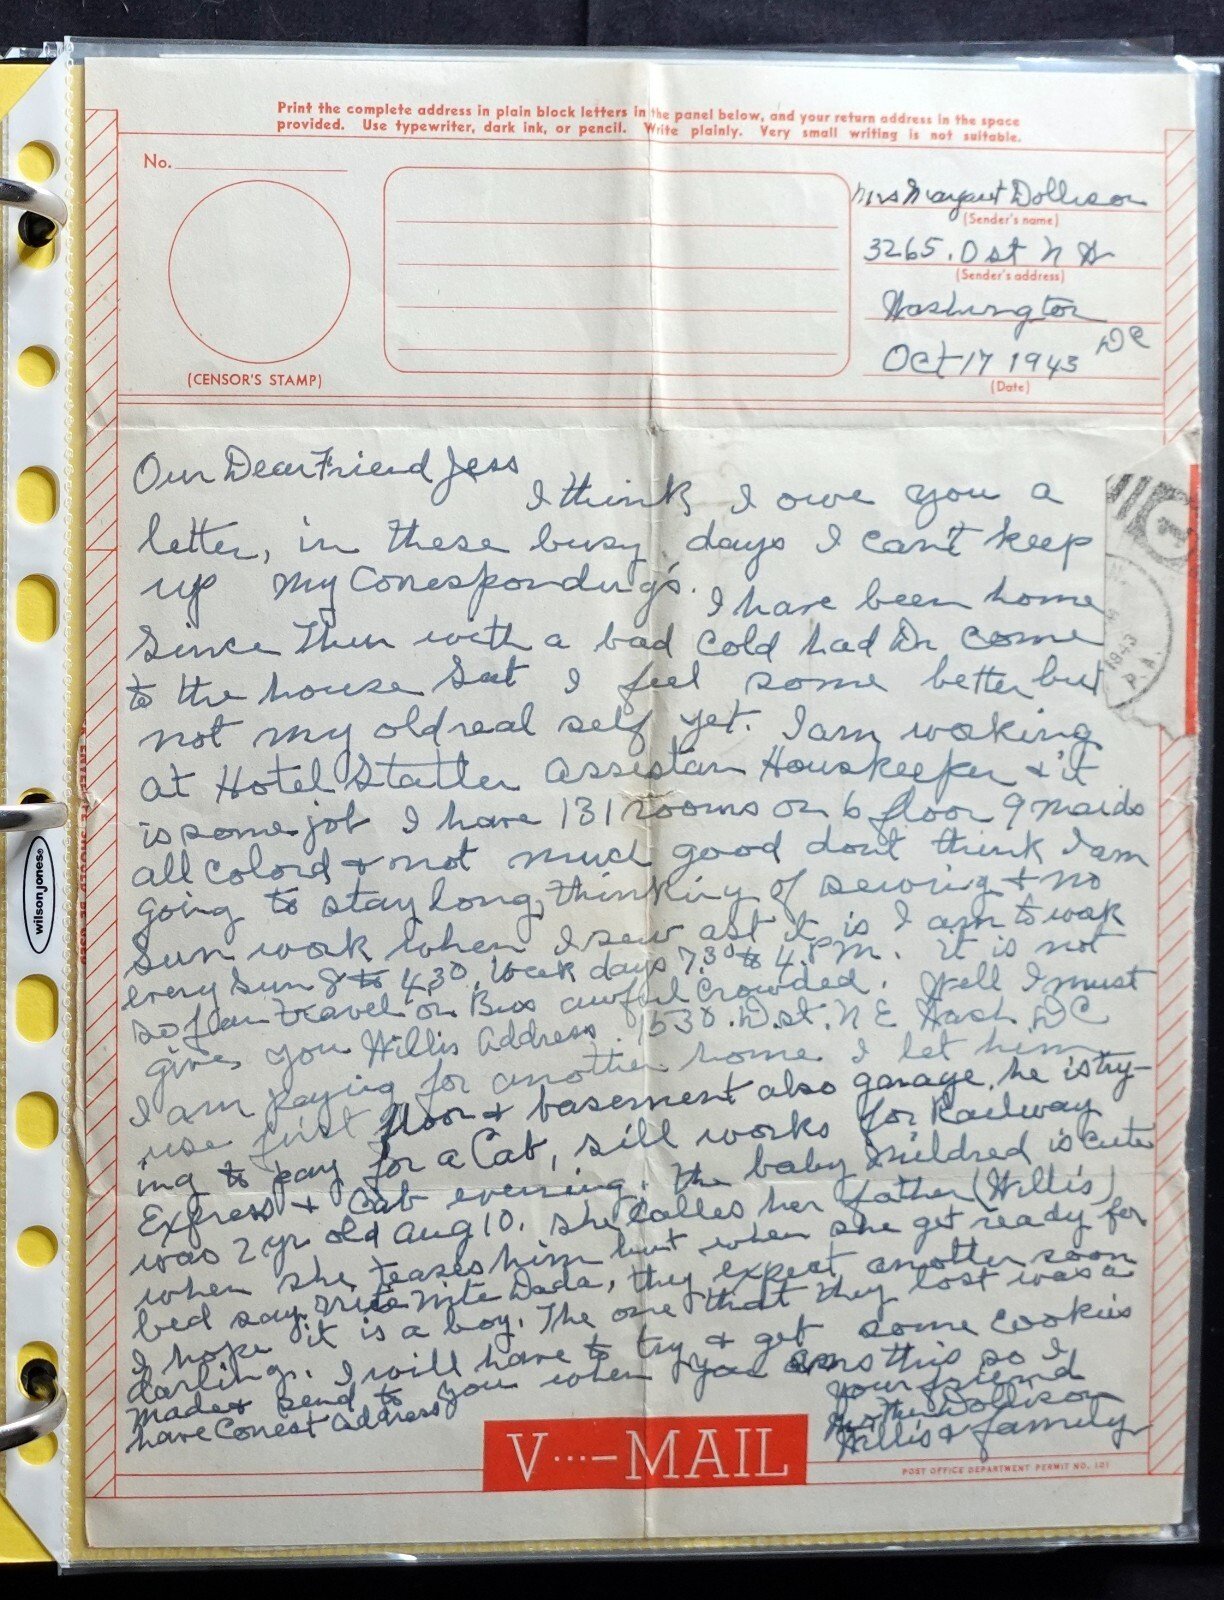 Print the complete address in plain block letters in the panel below, and your return address in the space
provided. Use typewriter, dark ink, or pencil. Write plainly. Very small writing is not suitable.
No.
(CENSOR'S STAMP)
Mrs Margaret Dollison
(Sender's name)
3265. O st N W
(Sender's address)
Washington
DC
Oct 17 1943
(Date)
Our Dear Friend Jess
I think I owe you a
letter, in these busy days I can't keep
up my Conespondings. I have been home
Since Then with a bad Cold had Dr Come
to the house Sat I feel some better but
not my old real self yet. I am woking
at Hotel Statler assistan Houskeeper & it
is some job I have 131 rooms on 6 floor 9 maids
all Colord & not much good dont think I am
going to stay long, thinking of sewing & no
Sun work when I sew as it is I am to wok
every Sun 8 to 430. Week days 7.30 to 4.PM. It is not
so far travel on Bus awful Crowded. Well I must
give you Willis Address. 1530.D.st. N E Wash DC
I am paying for another home I let him
use first floor & basement also garage, he is try-
ing to pay for a Cab, sill works for Railway
Express & Cab evening. The baby Mildred is cute
was 2 yr old Aug 10. She Calles her father (Willis)
when she teases him but when she get ready for
bed say nite nite Dada, they expect another soon
I hope it is a boy. The one that they lost was a
darling. I will have to try & get some cookies
made & send to you when you ans this so I
have Conest Address
Your friend
Mother Dollison
Willis & family
V···—MAIL
POST OFFICE DEPARTMENT PERMIT NO. 101
1943
P.A.
wilsonjones®